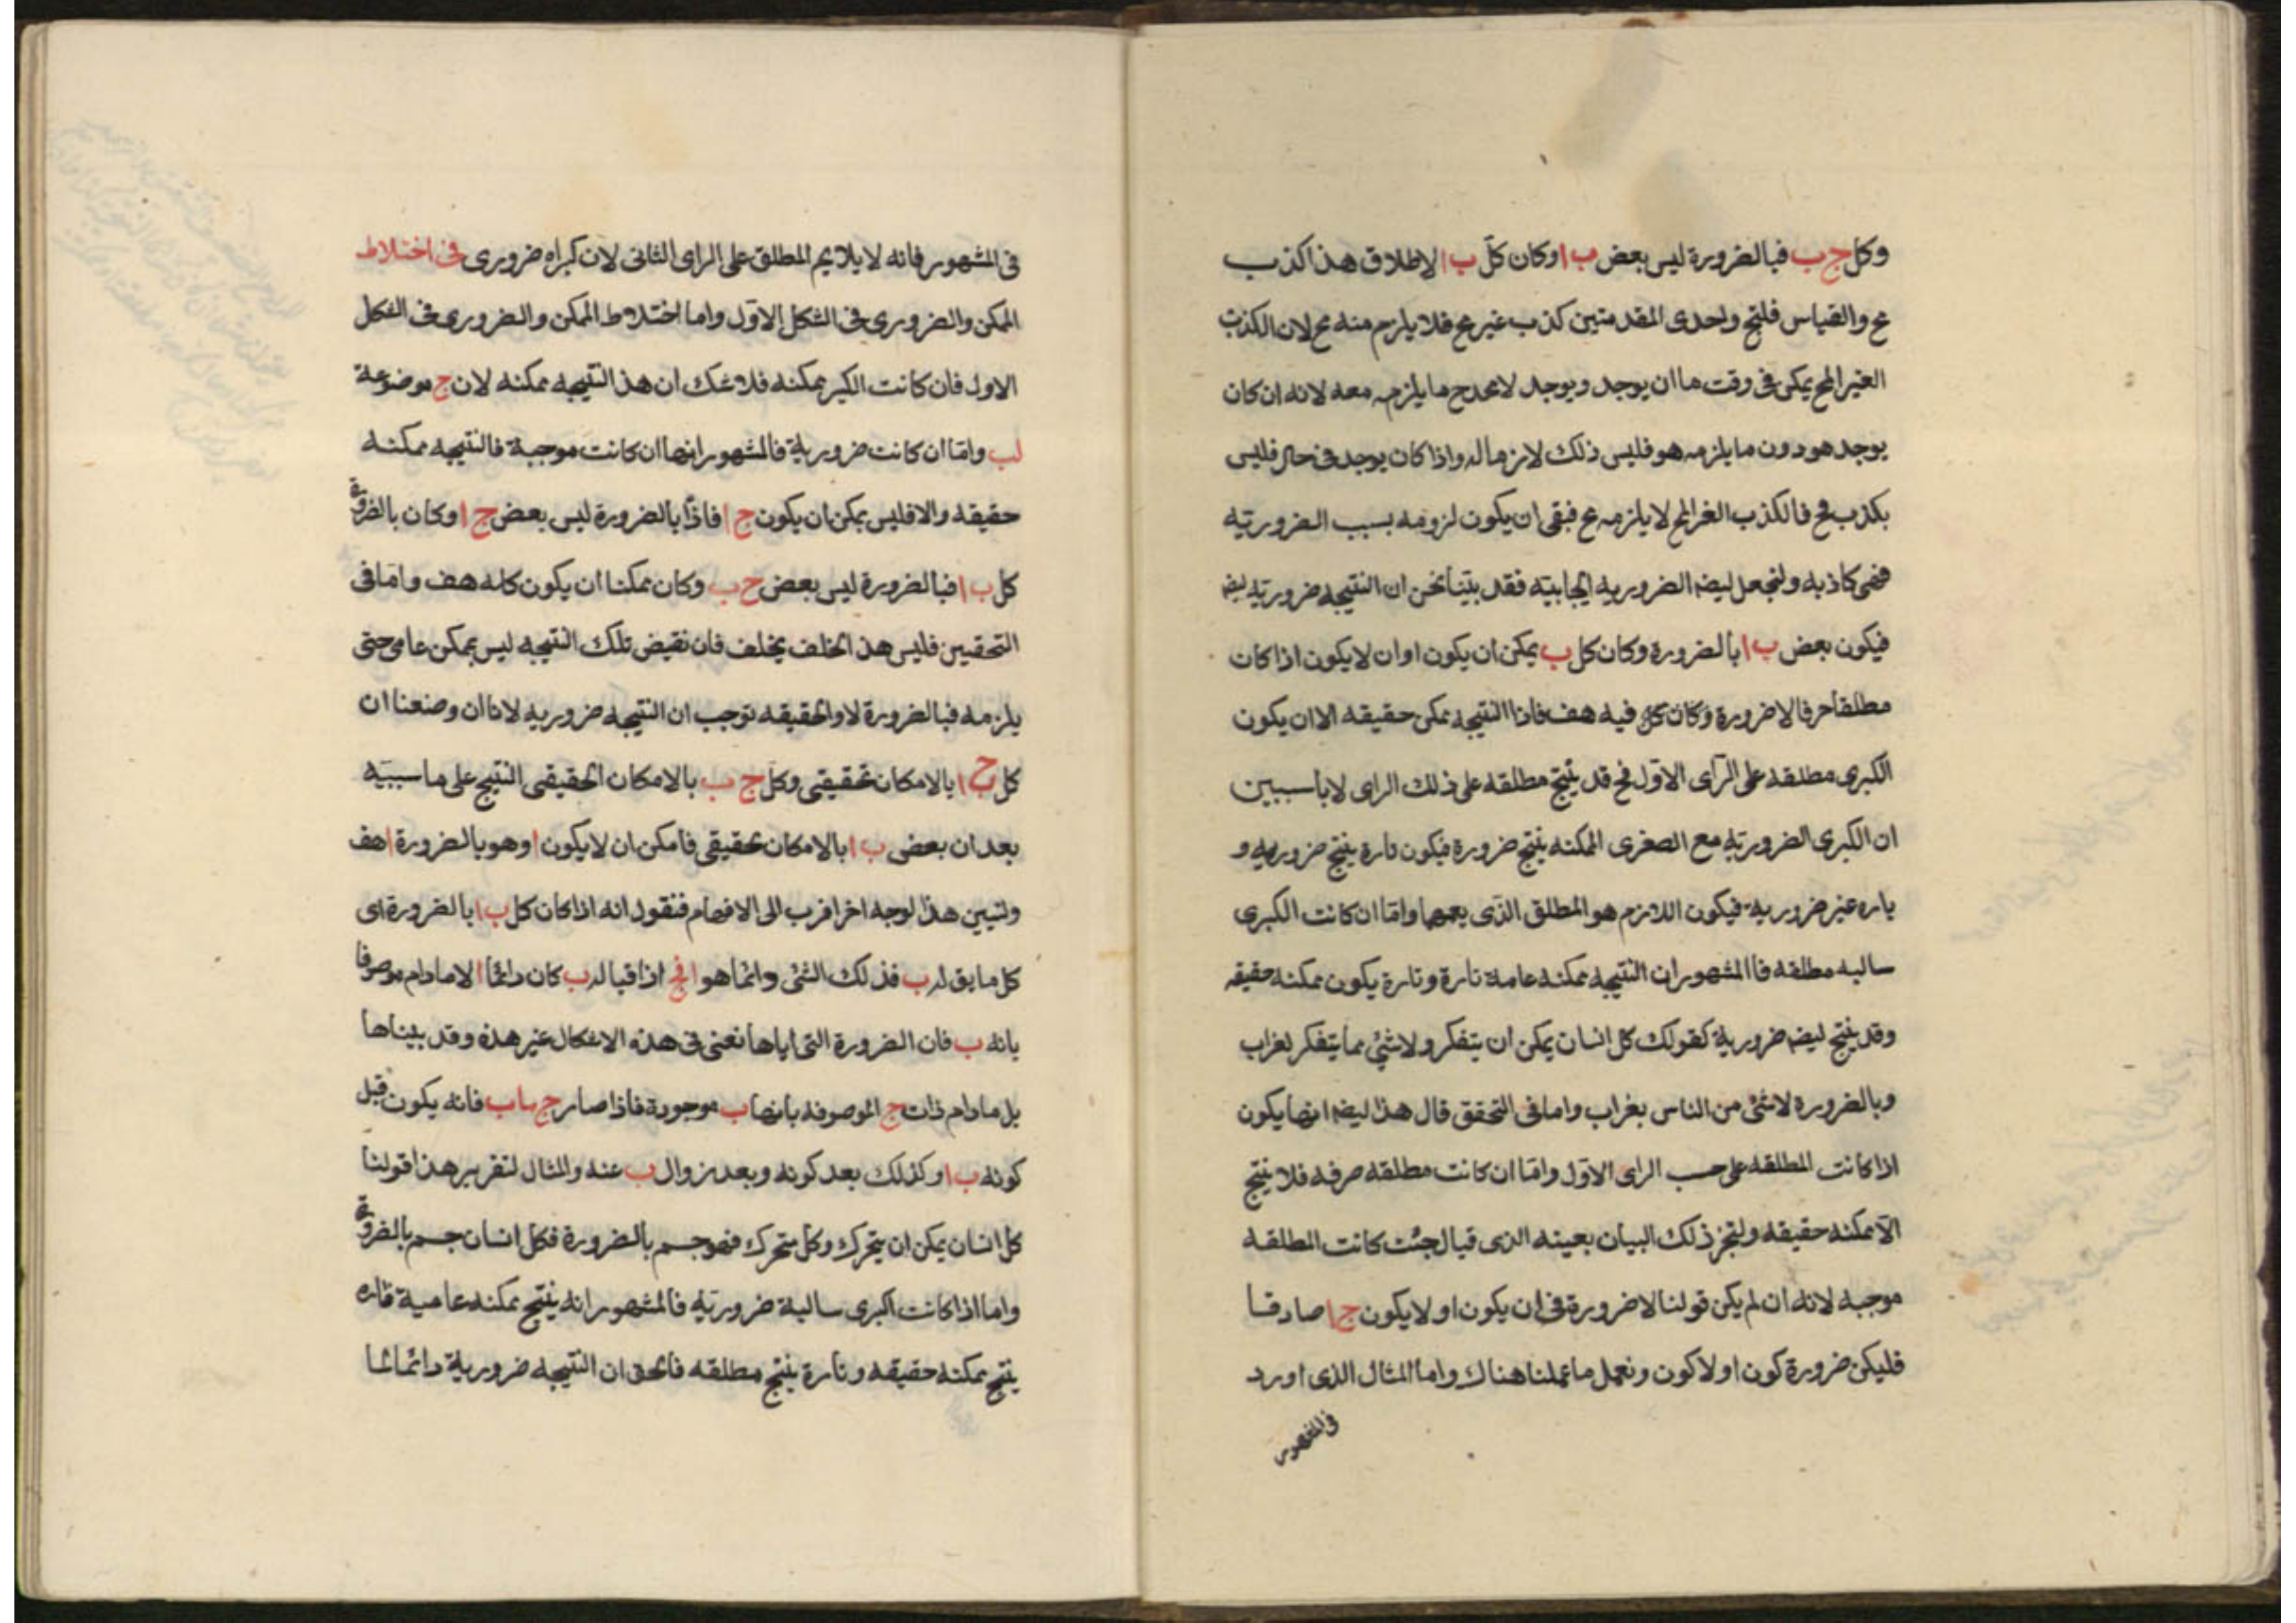 وكل ج ب فبالضرورة ليس بعض ب ا وكان كلّ ب ا لاطلاق هذا كذب
مح والقياس فلنتج واحدى المقدمتين كذب غير مح فلا يلزم منه مح لان الكذب
الغير المح يمكن فى وقت ما ان يوجد ويوجد لا محه ح ما يلزمه معه لانه ان كان
يوجد هو دون ما يلزمه هو فليس ذلك لازما له واذا كان يوجد فى حال فليس
بكذب مح فالكذب الغر المح لا يلزمه مح فبقى ان يكون لزومه بسبب الضروريّه
فهى كاذبه ولنجعل ليضا الضروريه ايجابيّه فقد بيّنا نحن ان النتيجه ضروريّه ليضا
فيكون بعض ب ا بالضرورة وكان كل ب يمكن ان يكون او ان لا يكون اذا كان
مطلقا صرفا لا ضرورة وكان كل فيه هف فاذا النتيجه يمكن حقيقه الا ان يكون
الكبرى مطلقه على الرّاى الاوّل فح قد ينتج مطلقه على ذلك الراى لا با سببين
ان الكبرى الضروريّه مع الصغرى الممكنه ينتج ضرورة فيكون تارة ينتج ضروريه و
تاره غير ضروريه فيكون اللازم هو المطلق الذى يعمها وامّا ان كانت الكبرى
سالبه مطلقه فاالمشهور ان النتيجه ممكنه عامة تارة وتارة يكون ممكنه حقيقه
وقد ينتج ليضا ضرورية كقولك كل انسان يمكن ان يتفكر ولا شئ مما يتفكر بغراب
وبالضرورة لا شئ من الناس بغراب واما فى التحقق قال هذا ليضا انها يكون
اذا كانت المطلقه على حسب الراى الاوّل وامّا ان كانت مطلقه صرفه فلا ينتج
الّا ممكنه حقيقه ولنجز ذلك البيان بعينه الذى قيا لجئت كانت المطلقه
موجبه لانه ان لم يكن قولنا لا ضرورة فى ان يكون او لا يكون ج ا صادقا
فليكن ضرورة كون او لا كون ونعمل ما عملنا هناك واما المثال الذى اورد
فى المشهور
فى المشهور فانه لا يلايم المطلق على الراى الثانى لان كبراه ضرورى فى اختلاط
الممكن والضرورى فى الشكل الاوّل واما اختلاط الممكن والضرورى فى الشكل
الاول فان كانت الكبر ممكنه فلا شك ان هذا النتيجه ممكنه لان ج موضوعة
لب وامّا ان كانت ضرورية فالمشهور انها ان كانت موجبة فالنتيجه ممكنه
حقيقه والا فليس يمكن ان يكون ج ا فاذا بالضرورة ليس بعض ج ا وكان بالضرورة
كل ب ا فبالضرورة ليس بعض ج ب وكان ممكنا ان يكون كله هف وامّا فى
التحقيق فليس هذا الخلف بخلف فان نقيض تلك النتيجه ليس بممكن عامى حتى
يلزمه فبالضرورة لا والحقيقه توجب ان النتيجه ضروريه لانا ان وضعنا ان
كل ج ا بالامكان تحقيقى وكل ج ب بالامكان الحقيقى النتيج على ما سبيّه
بعد ان بعض ب ا بالامكان تحقيقى فامكن ان لا يكون ا وهو بالضرورة ا هف
ولنبين هذا لوجه اخر اقرب الى الافهام فنقول انه اذا كان كل ب ا بالضرورة اى
كل ما يق له ب فذلك الشئ دائما هو ا فح اذا قيا له ب كان دائما ا لا مادام موصوفا
بانه ب فان الضرورة التى اياها نعنى فى هذه الاشكال غير هذه وقد بيناها
بل مادام ذات ج الموصوفه بانها ب موجودة فاذا صار ج ما ب فانه يكون قبل
كونه ب ا وكذلك بعد كونه وبعد زوال ب عنه والمثال لتقرير هذا قولنا
كل انسان يمكن ان يتحرك وكل متحرك فهو جسم بالضرورة فكل انسان جسم بالضرورة
واما اذا كانت الكبرى سالبة ضروريّه فالمشهور انه ينتج ممكنه عامية فتاره
ينتج ممكنه حقيقه وتارة ينتج مطلقه فالحق ان النتيجه ضرورية دائما لما